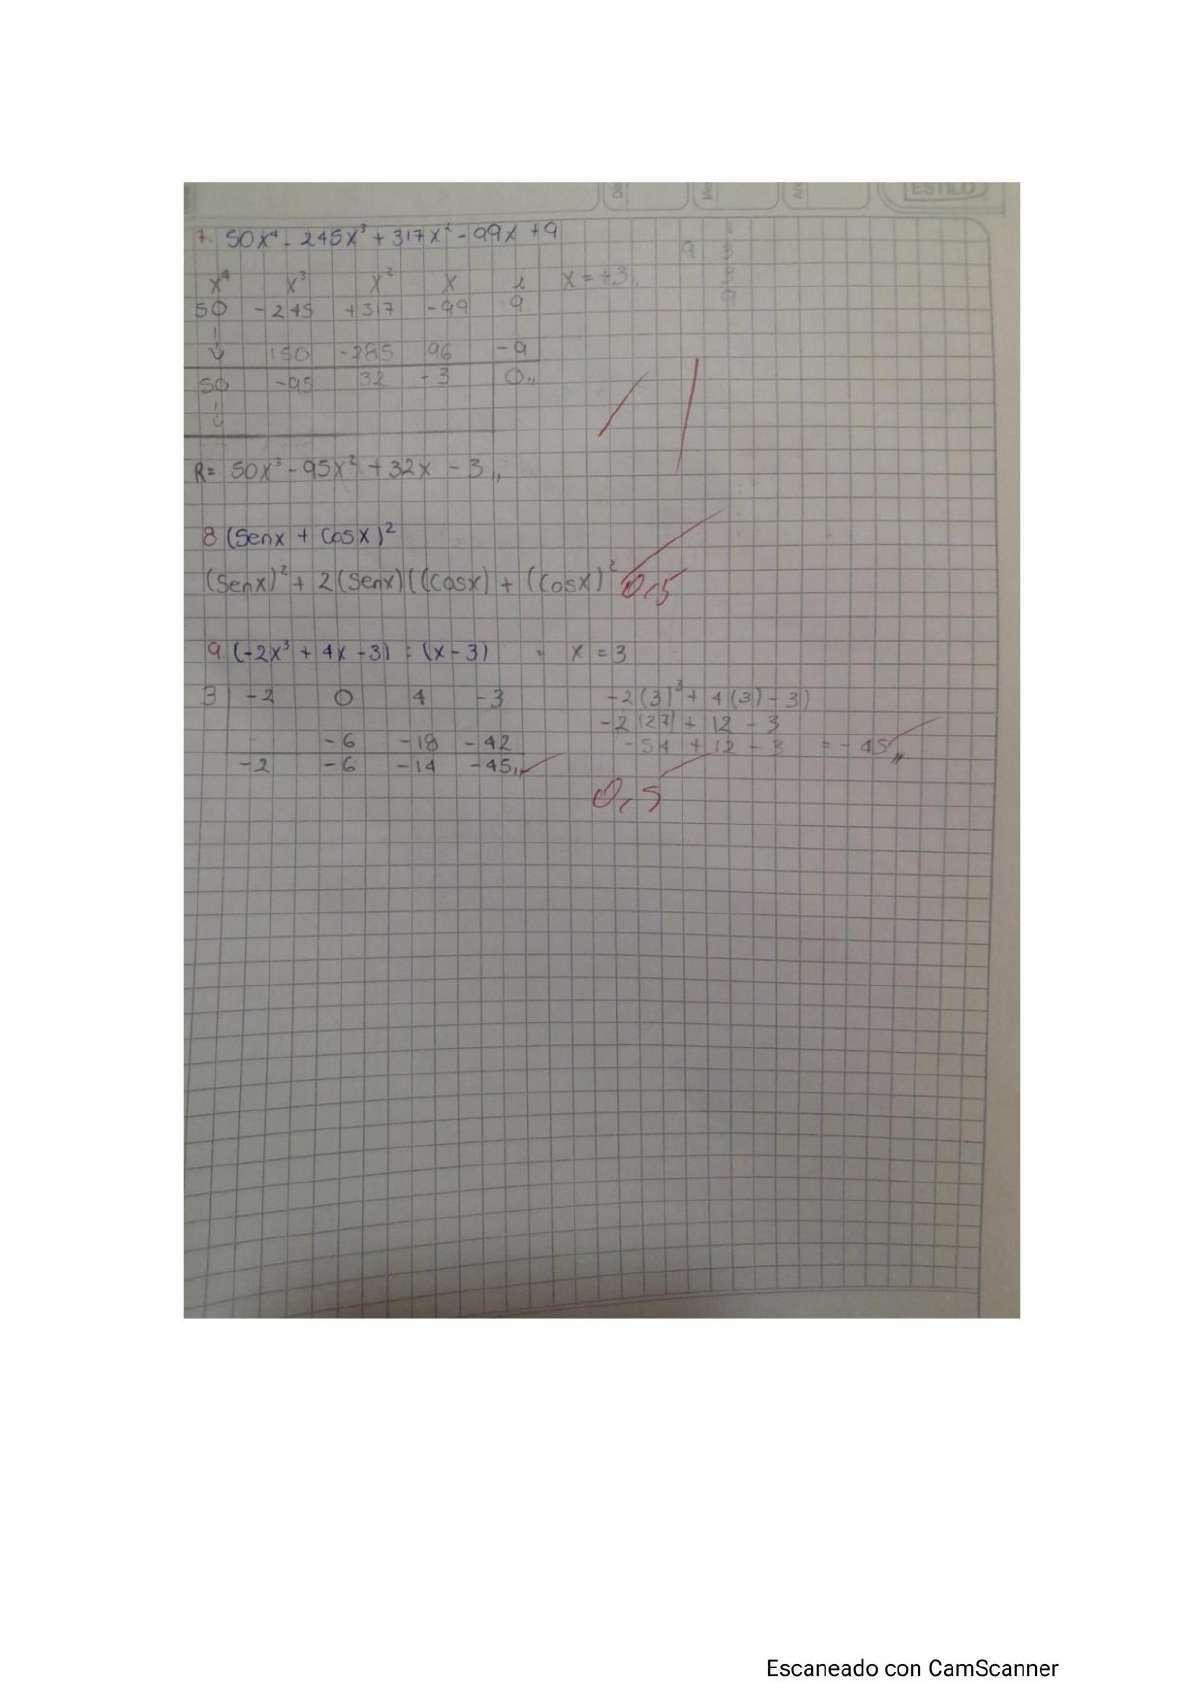 ESTILO
7. 50x⁴ - 245x³ + 317x² - 99x + 9
9 3
3
x⁴ x³ x² x x = +3
9
50 -245 +317 -99 9
↓ 150 -285 96 -9
50 -95 32 -3 0,,
↓
R= 50x³ - 95x² + 32x - 3,,
8 (Senx + Cosx)²
(Senx)² + 2(Senx)((Cosx) + (Cosx)² 0,5
9. (-2x³ + 4x - 3) : (x - 3) = x = 3
3 -2 0 4 -3 -2(3)³ + 4(3) - 3)
-2(27) + 12 - 3
-6 -18 -42 -54 + 12 - 3 = -45,,
-2 -6 -14 -45,,
0,5
Escaneado con CamScanner